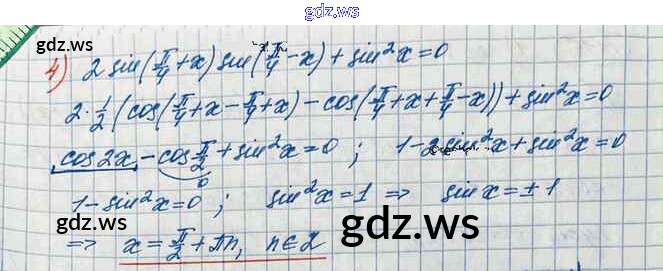 gdz.ws
gdz.ws
4) 2 sin(π/4 + x) sin(π/4 - x) + sin²x = 0
2 · 1/2 (cos(π/4 + x - π/4 + x) - cos(π/4 + x + π/4 - x)) + sin²x = 0
cos 2x - cos π/2 + sin²x = 0 ; 1 - 2 sin²x + sin²x = 0
0
1 - sin²x = 0 ; sin²x = 1 => sin x = ± 1
gdz.ws
gdz.ws
=> x = π/2 + πn, n ∈ Z